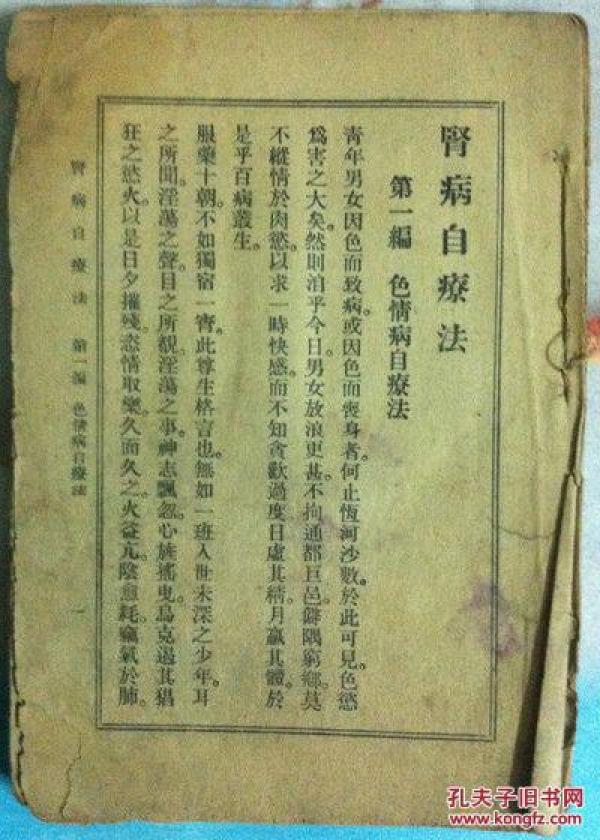 腎病自療法
第一編 色情病自療法
青年男女因色而致病。或因色而喪身者。何止恆河沙數。於此可見色慾
爲害之大矣。然則洎乎今日。男女放浪更甚。不拘通都巨邑。僻隅窮鄉。莫
不縱情於肉慾。以求一時快感。而不知貪歡過度。日虛其精。月羸其體。於
是乎百病叢生。
服藥十朝。不如獨宿一宵。此尊生格言也。無如一班入世未深之少年。耳
之所聞。淫蕩之聲。目之所覩。淫蕩之事。神志飄忽。心旌搖曳。烏克遏其猖
狂之慾火。以是日夕摧殘。恣情取樂。久而久之。火益亢。陰愈耗。竊氣於肺。
腎病自療法 第一編 色情病自療法 一
孔夫子旧书网
www.kongfz.com